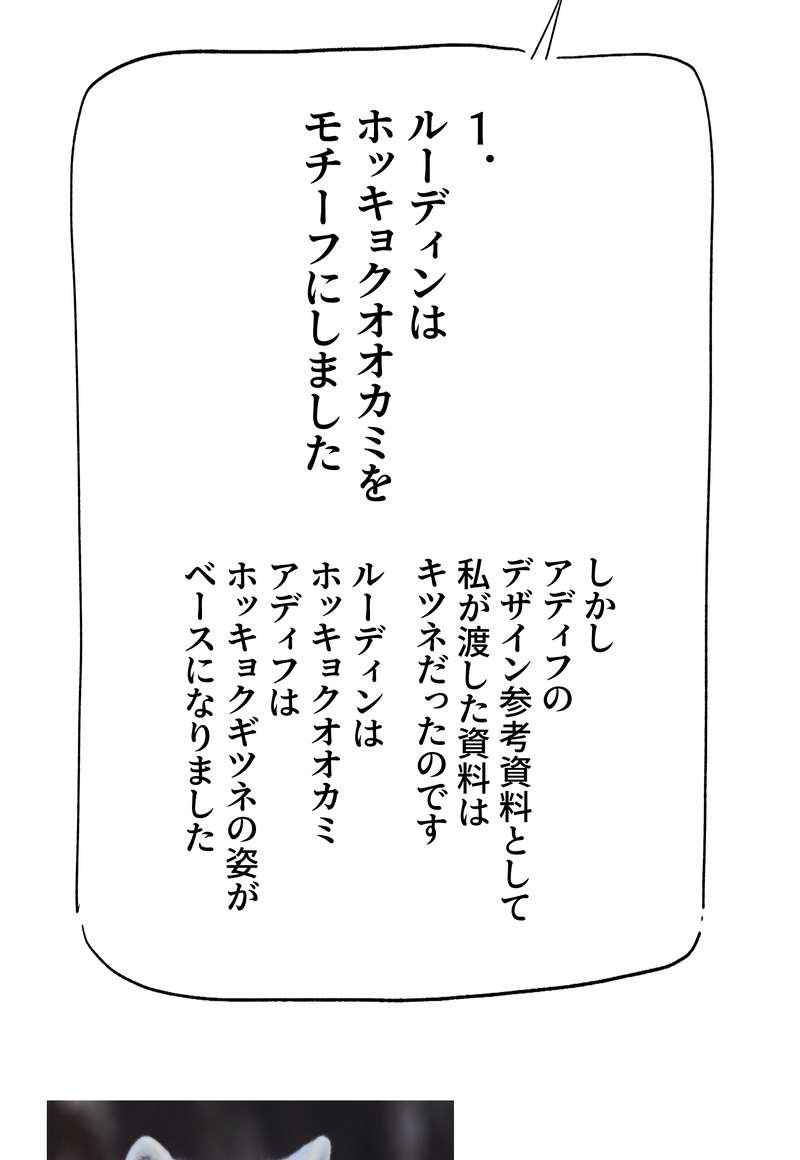 1.
ルーディンは
ホッキョクオオカミを
モチーフにしました
しかし
アディフの
デザイン参考資料として
私が渡した資料は
キツネだったのです
ルーディンは
ホッキョクオオカミ
アディフは
ホッキョクギツネの姿が
ベースになりました